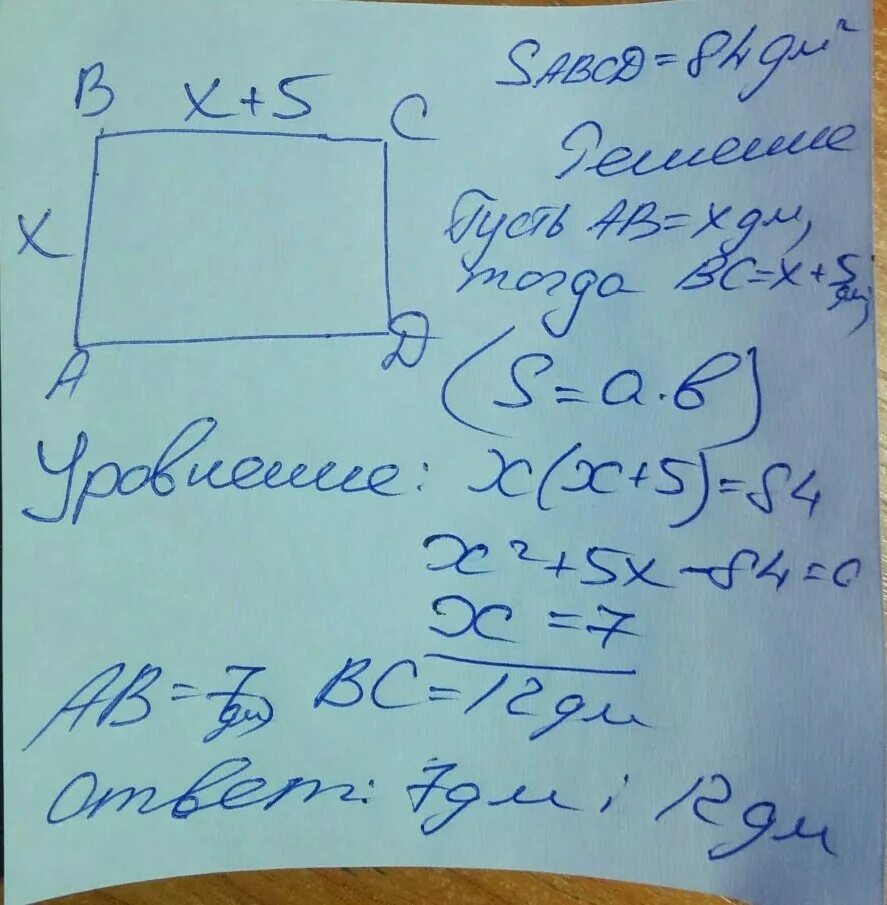 B x+5 C
x
A D
SABCD = 84 дм²
Решение
Пусть AB = x дм,
тогда BC = x + 5 дм;
(S = a · b)
Уровнение: x(x+5) = 84
x² + 5x - 84 = 0
x = 7
AB = 7 дм BC = 12 дм
Ответ: 7 дм; 12 дм